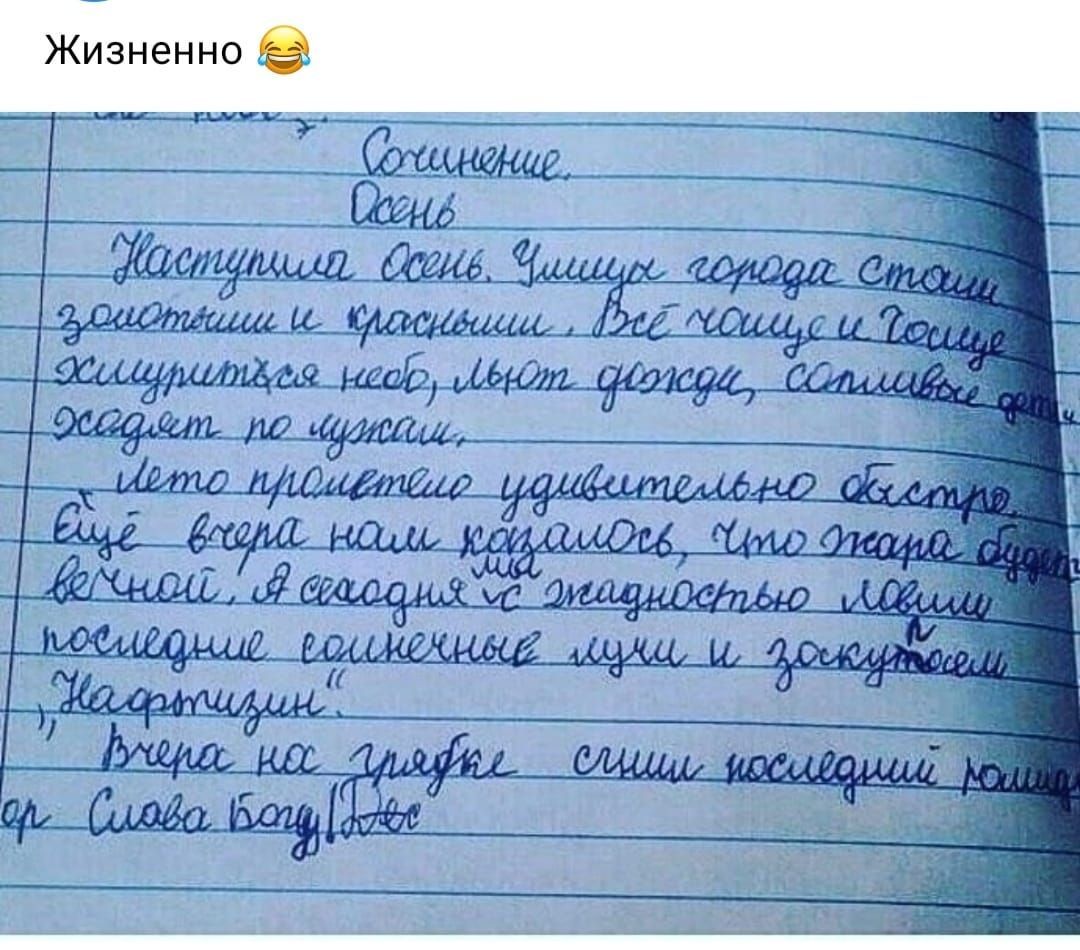 Жизненно 😂
Сочинение.
Осень
Наступила Осень. Улицы города Стали
золотыми и красными. Всё чаще и Чаще
хмурится небо, льют дожди, сопливые дети
ходят по лужам.
Лето пролетело удивительно быстро.
Ещё вчера нам казалось, что жара будет
вечной. А сегодня мы с жадностью ловим
последние солнечные лучи и закупаем
„Нафтизин“.
Вчера на грядке сгнил последний помид
ор Слава Богу!